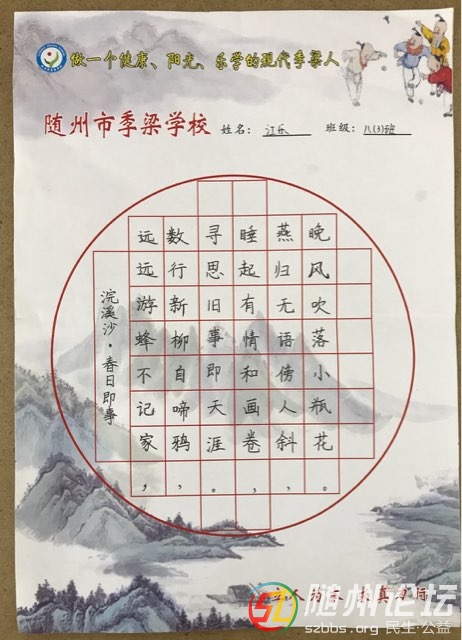 做一个健康、阳光、乐学的现代季梁人
随州市季梁学校 姓名： 班级：八(3)班
浣溪沙·春日即事
远远游蜂不记家，
数行新柳自啼鸦，
寻思旧事即天涯。
睡起有情和画卷，
燕归无语傍人斜，
晚风吹落小瓶花。
随州论坛
szbbs.org 民生·公益